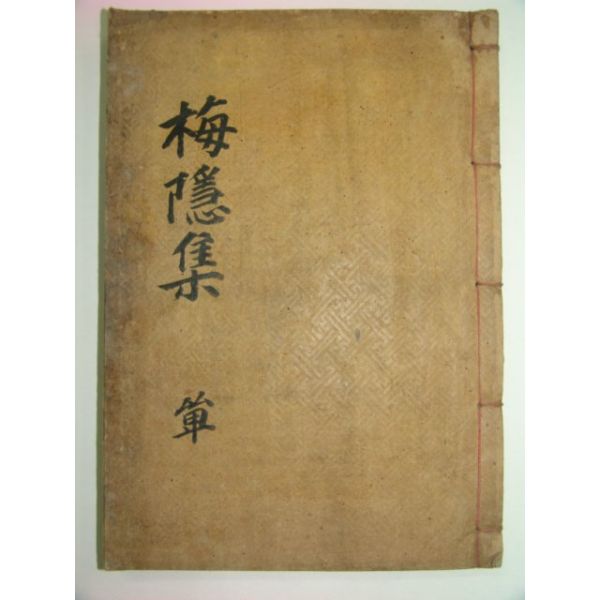 梅隱集
單